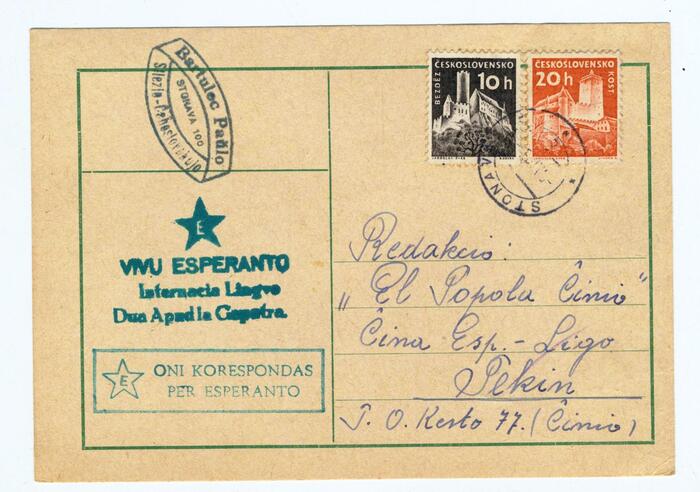 Bartulec Paŭlo
STONAVA 100
Silezio-Ĉehoslovakujo
BEZDĚZ
ČESKOSLOVENSKO
10 h
ČESKOSLOVENSKO
20 h
KOST
STONAVA
E
VIVU ESPERANTO
Internacia Lingvo
Dua Apud la Gepatra.
E
ONI KORESPONDAS
PER ESPERANTO
Redakcio:
„El Popola Ĉinio"
Ĉina Esp.-Ligo
Pekin
P. O. Kesto 77. (Ĉinio)